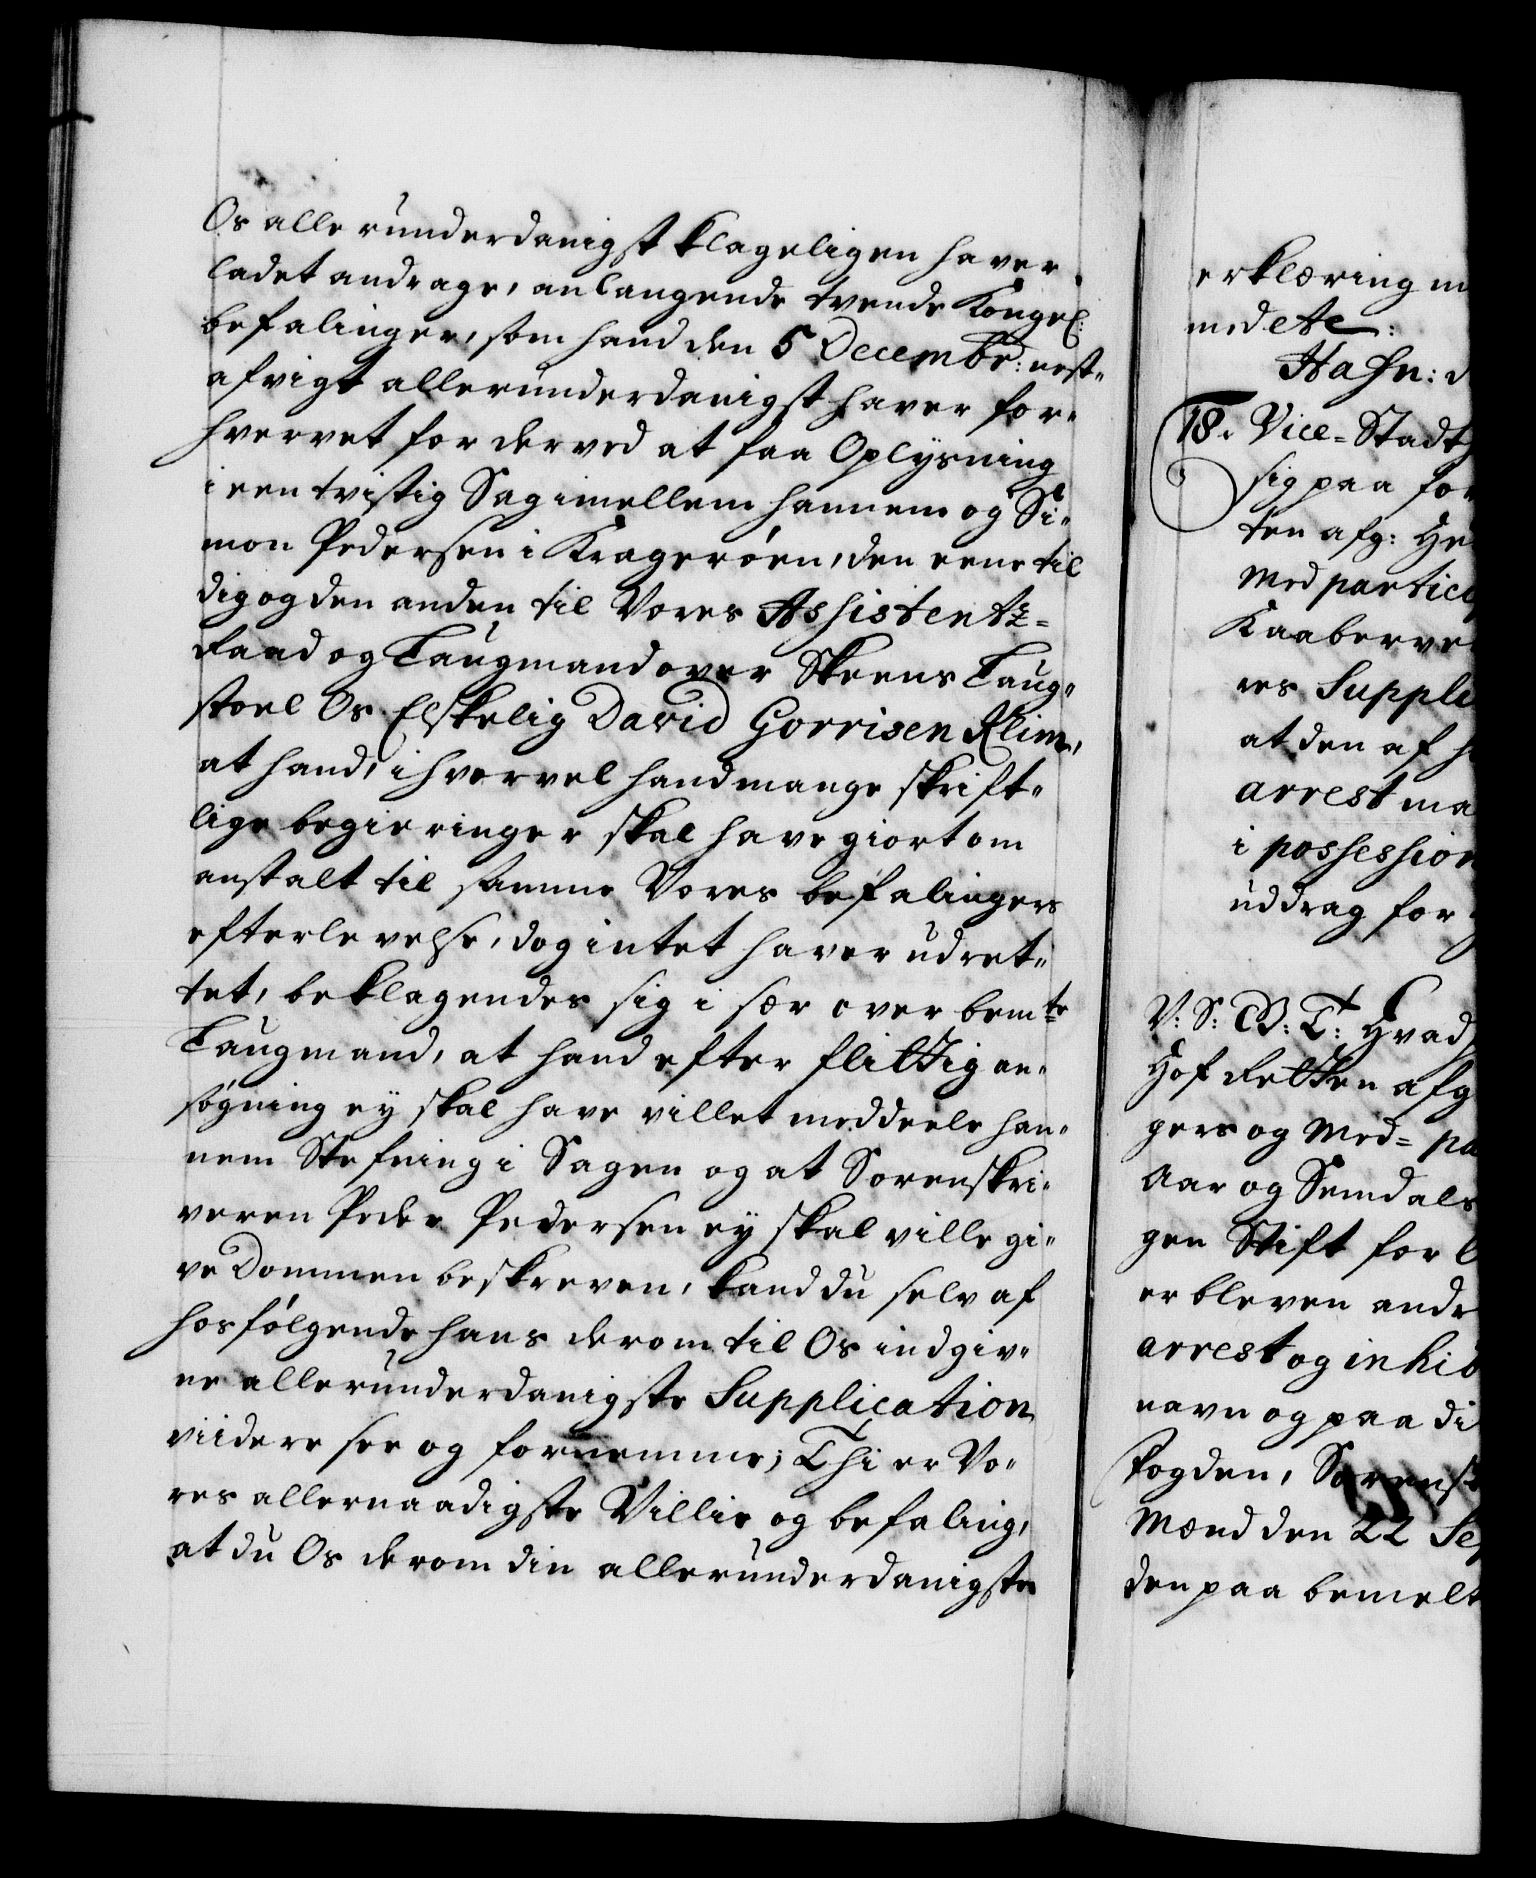 Os allerunderdanigst klageligen haver
ladet andrage, anlangende tvende Kongel:
befalinger, som hand den 5 Decembr: nest-
afvigt allerunderdanigst haver for-
hvervet for derved at faa Oplysning
i een tvistig Sag imellem hannem og Si-
mon Pedersen i Kragerøen, den eene til
dig og den anden til Vores Assistentz-
Raad og Laugmand over Skeens Laug-
stoel Os Elskelig David Gorrisen Klim,
at hand, ihvorvel hand mange skrift-
lige begieringer skal have giort om
anstalt til samme Vores befalingers
efterlevelse, dog intet haver udret-
tet, beklagendes sig i sær over bemte
Laugmand, at hand efter flittig an-
søgning ey skal have villet meddeele han-
nem Stefning i Sagen og at Sorenskri-
veren Peder Pedersen ey skal ville gi-
ve Dommen beskreven, kand du selv af
hosfølgende hans derom til Os indgiv-
ne allerunderdanigste Supplication
viidere see og fornemme; Thi er Vo-
res allernaadigste Villie og befaling,
at du Os derom din allerunderdanigste
erklæring m
med etc:
Hafn: d
18. Vice-Stadt
sig paa for
ten afg: He
Med partici
Kaaberve
res Suppli
at den af h
arrest ma
i possession
uddrag for
V: S: G: T: Hvad
Hof Retten afg
gers og Med- pa
Aar og Semdals
gen Stift for l
er bleven andr
arrest og inhib
navn og paa di
Fogden, Sorensk
Mænd den 22 Sep
den paa bemelt